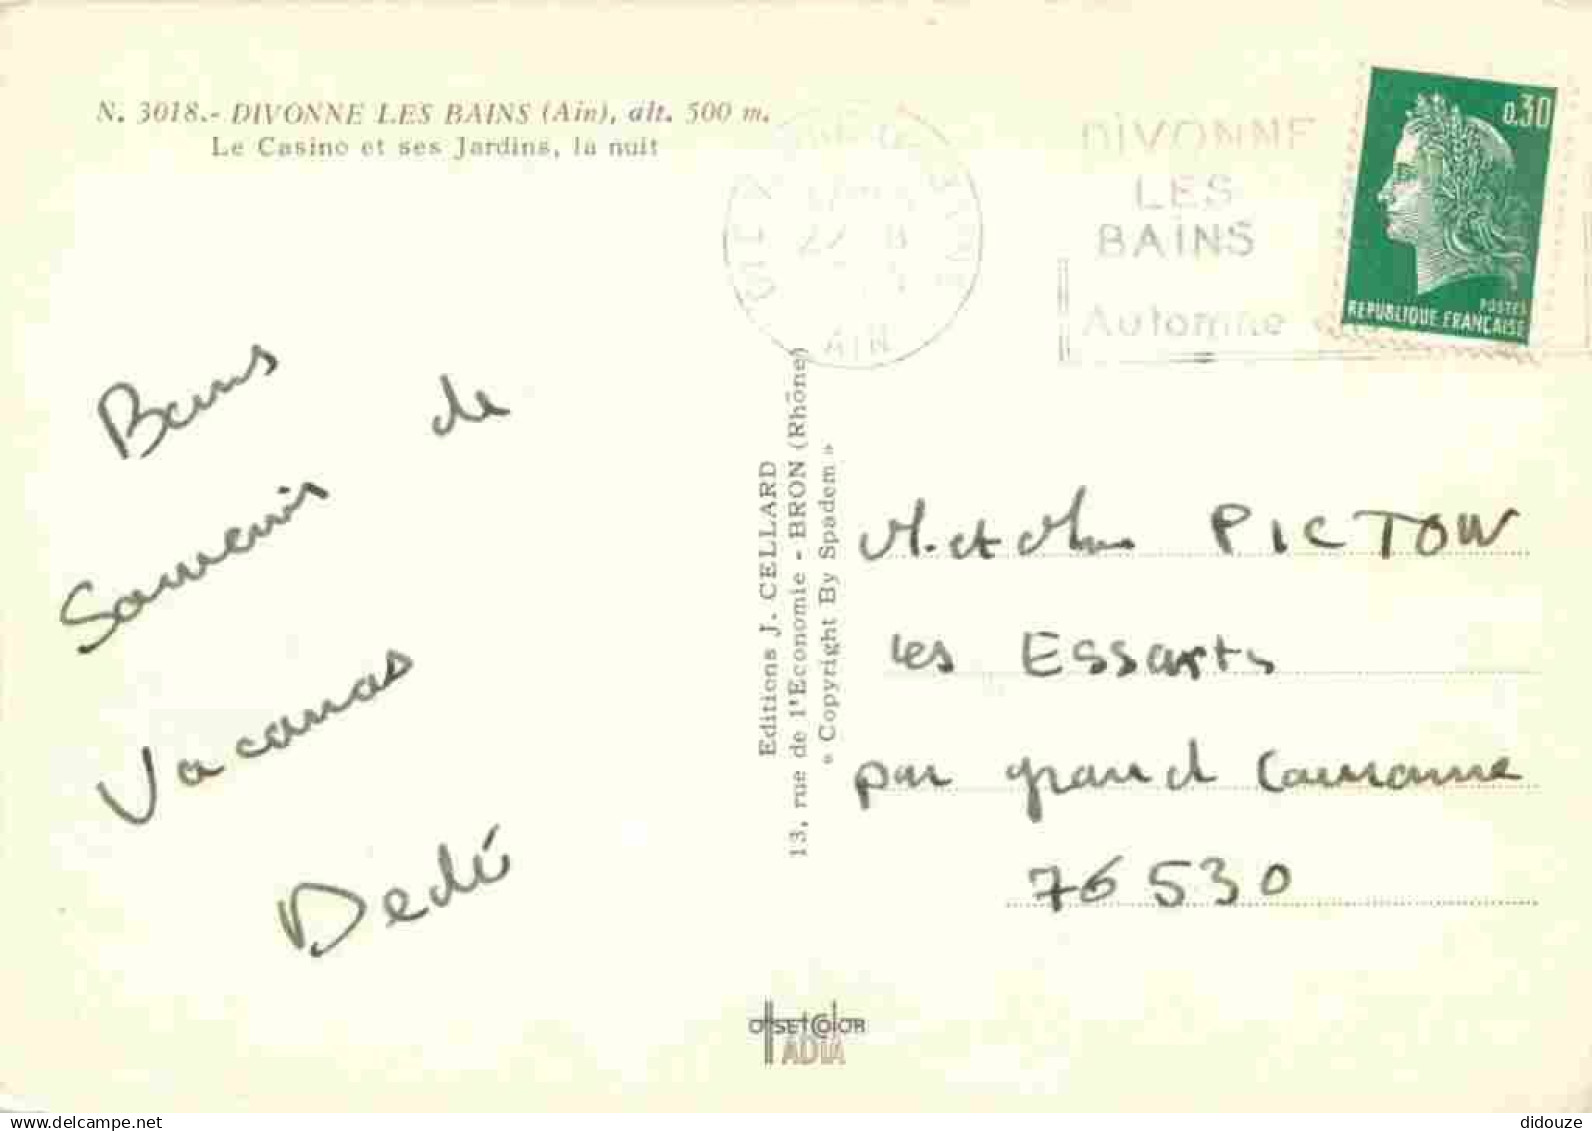 N. 3018.- DIVONNE LES BAINS (Ain), alt. 500 m.
Le Casino et ses Jardins, la nuit
DIVONNE
LES
BAINS
Automne
AIN
0,30
POSTES
REPUBLIQUE FRANÇAISE
Bons
Souvenirs de
Vacances
Dédé
Editions J. CELLARD
13, rue de l'Economie - BRON (Rhône)
« Copyright By Spadem »
M. et Mme PICTOW
Les Essarts
par grand Couronne
76530
OffsetColor
ADIA
delcampe.net
didouze